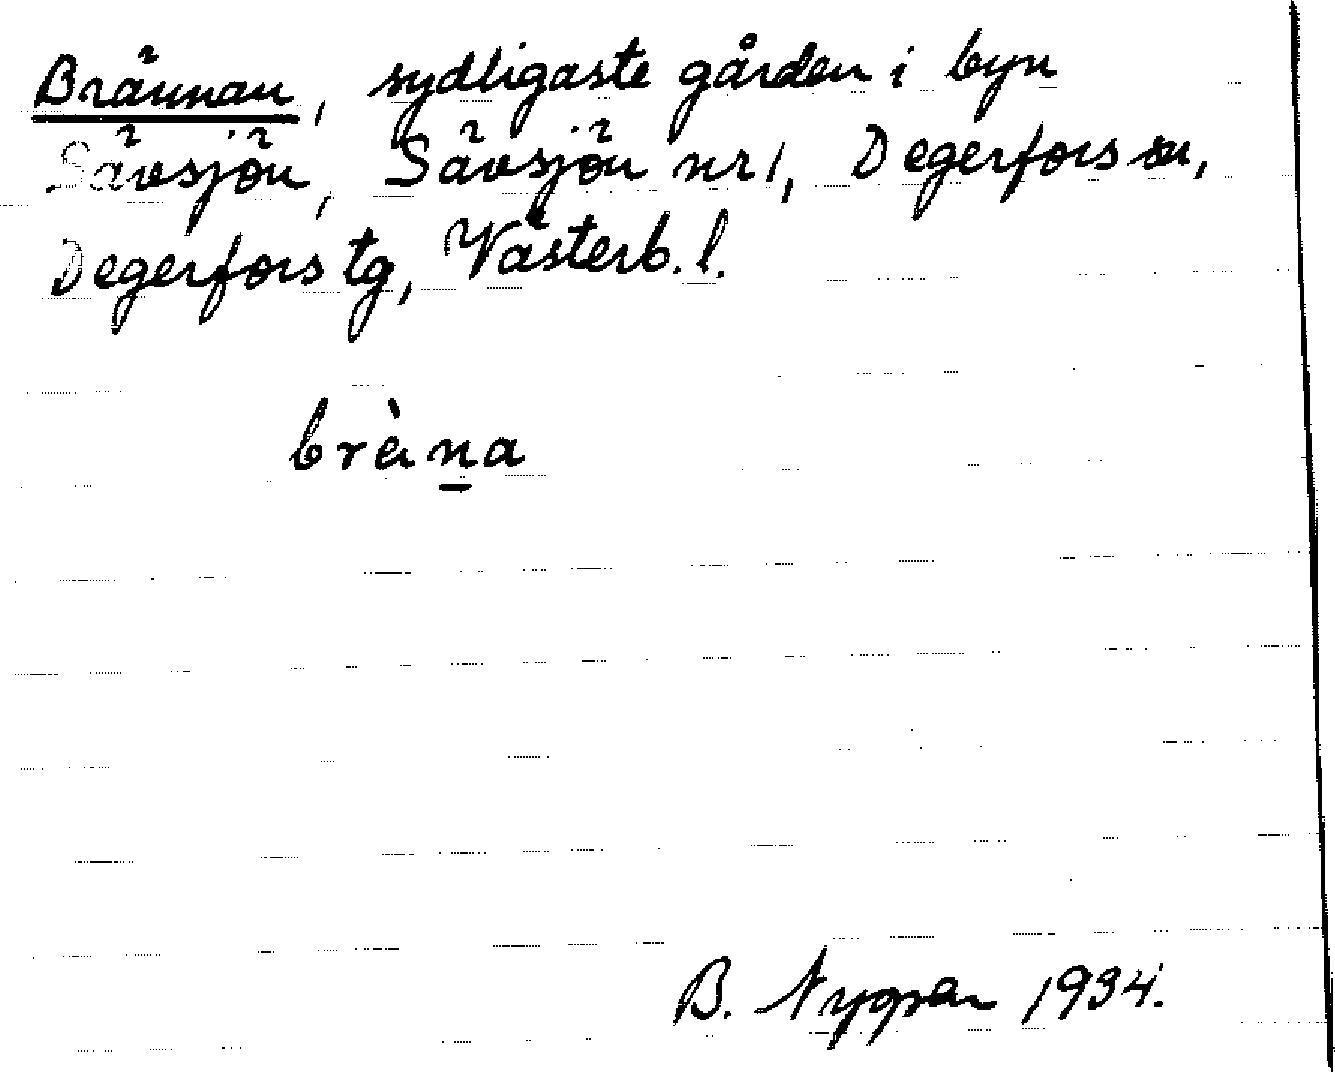 Brännan, sydligaste gården i byn
Sävsjön, Sävsjön nr 1, Degerfors sn,
Degerfors tg, Västerb. l.
brèna
B. Nygren 1934.